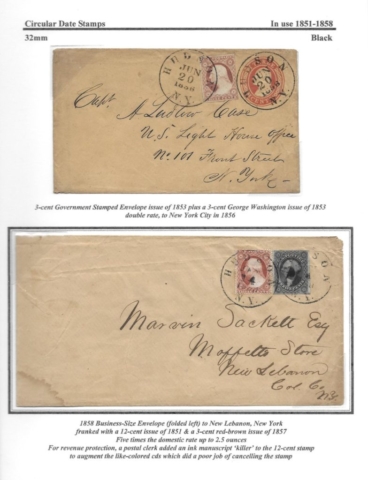 Circular Date Stamps In use 1851-1858
32mm Black
HUDSON JUN 20 1856 N.Y. HUDSON JUN 20 1856 N.Y.
Capt
A. Ludlow Case
U.S. Light House Office
No. 101 Front Street
N. York
3-cent Government Stamped Envelope issue of 1853 plus a 3-cent George Washington issue of 1853
double rate, to New York City in 1856
HUDSON N.Y. HUDSON N.Y.
Marvin Sackett Esq
Moffetts Store
New Lebanon
Col. Co.
NY
1858 Business-Size Envelope (folded left) to New Lebanon, New York
franked with a 12-cent issue of 1851 & a 3-cent red-brown issue of 1857
Five times the domestic rate up to 2.5 ounces
For revenue protection, a postal clerk added an ink manuscript 'killer' to the 12-cent stamp
to augment the like-colored cds which did a poor job of cancelling the stamp